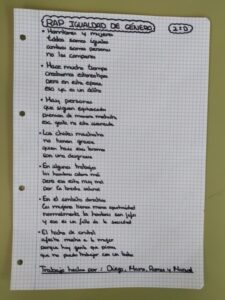 RAP IGUALDAD DE GÉNERO
2ºD
• Hombres y mujeres
todos somos iguales
ambos somos personas
no los compares
• Hace mucho tiempo
creábamos estereotipos
pero en esta época
eso ya es un delito
• Hay personas
que siguen
piensan de manera machista
eso ya no está
• Los chistes machistas
no tienen gracia
quien hace esa broma
son una desgracia
• En algunos trabajos
los hombres cobran más
pero eso está muy mal
por la brecha salarial
• En el ámbito
las mujeres tienen menos
normalmente los hombres son jefes
y eso es un fallo de la sociedad
• El hecho de
afecta mucho a la mujer
porque hay gente que piensa
que no puede trabajar con un bebé
Trabajo hecho por: Diego, Ramos y Manuel